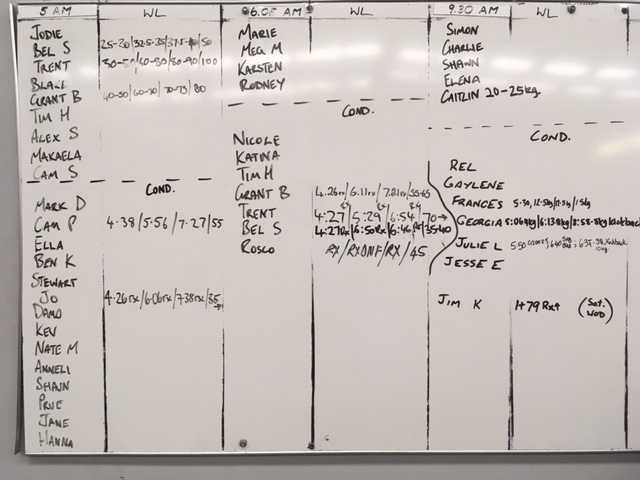 5 AM WL
JODIE
BEL S 25-30/32.5-35/37.5-40/50
TRENT 30-50/60-80/80-90/100
GRANT B 40-50/60-70/70-75/80
TIM H
ALEX S
MAKAELA
CAM S
COND.
MARK D
CAM P 4.38/5.56/7.27/55
ELLA
BEN K
STEWART
JO 4.26rx/6.06rx/7.38rx/35
DAMO
KEV
NATE M
ANNELI
SHAUN
PRUE
JANE
HANNA
6.05 AM WL
MARIE
MEG M
KARSTEN
RODNEY
COND.
NICOLE
KATINA
TIM H
GRANT B 4.26rx/6.11rx/7.21rx/55-65
TRENT 4:27/5:29/6:54/70→
BEL S 4:27Rx/6:50Rx/6:46Rx/35-40
ROSCO RX/RXDNF/RX/45
9.30 AM WL
SIMON
CHARLIE
SHAWN
ELENA
CAITLIN 20-25kg
COND.
REL
GAYLENE
FRANCES
GEORGIA
JULIE L
JESSE E
JIM K 1+79 Rx+ (Sat. WOD)